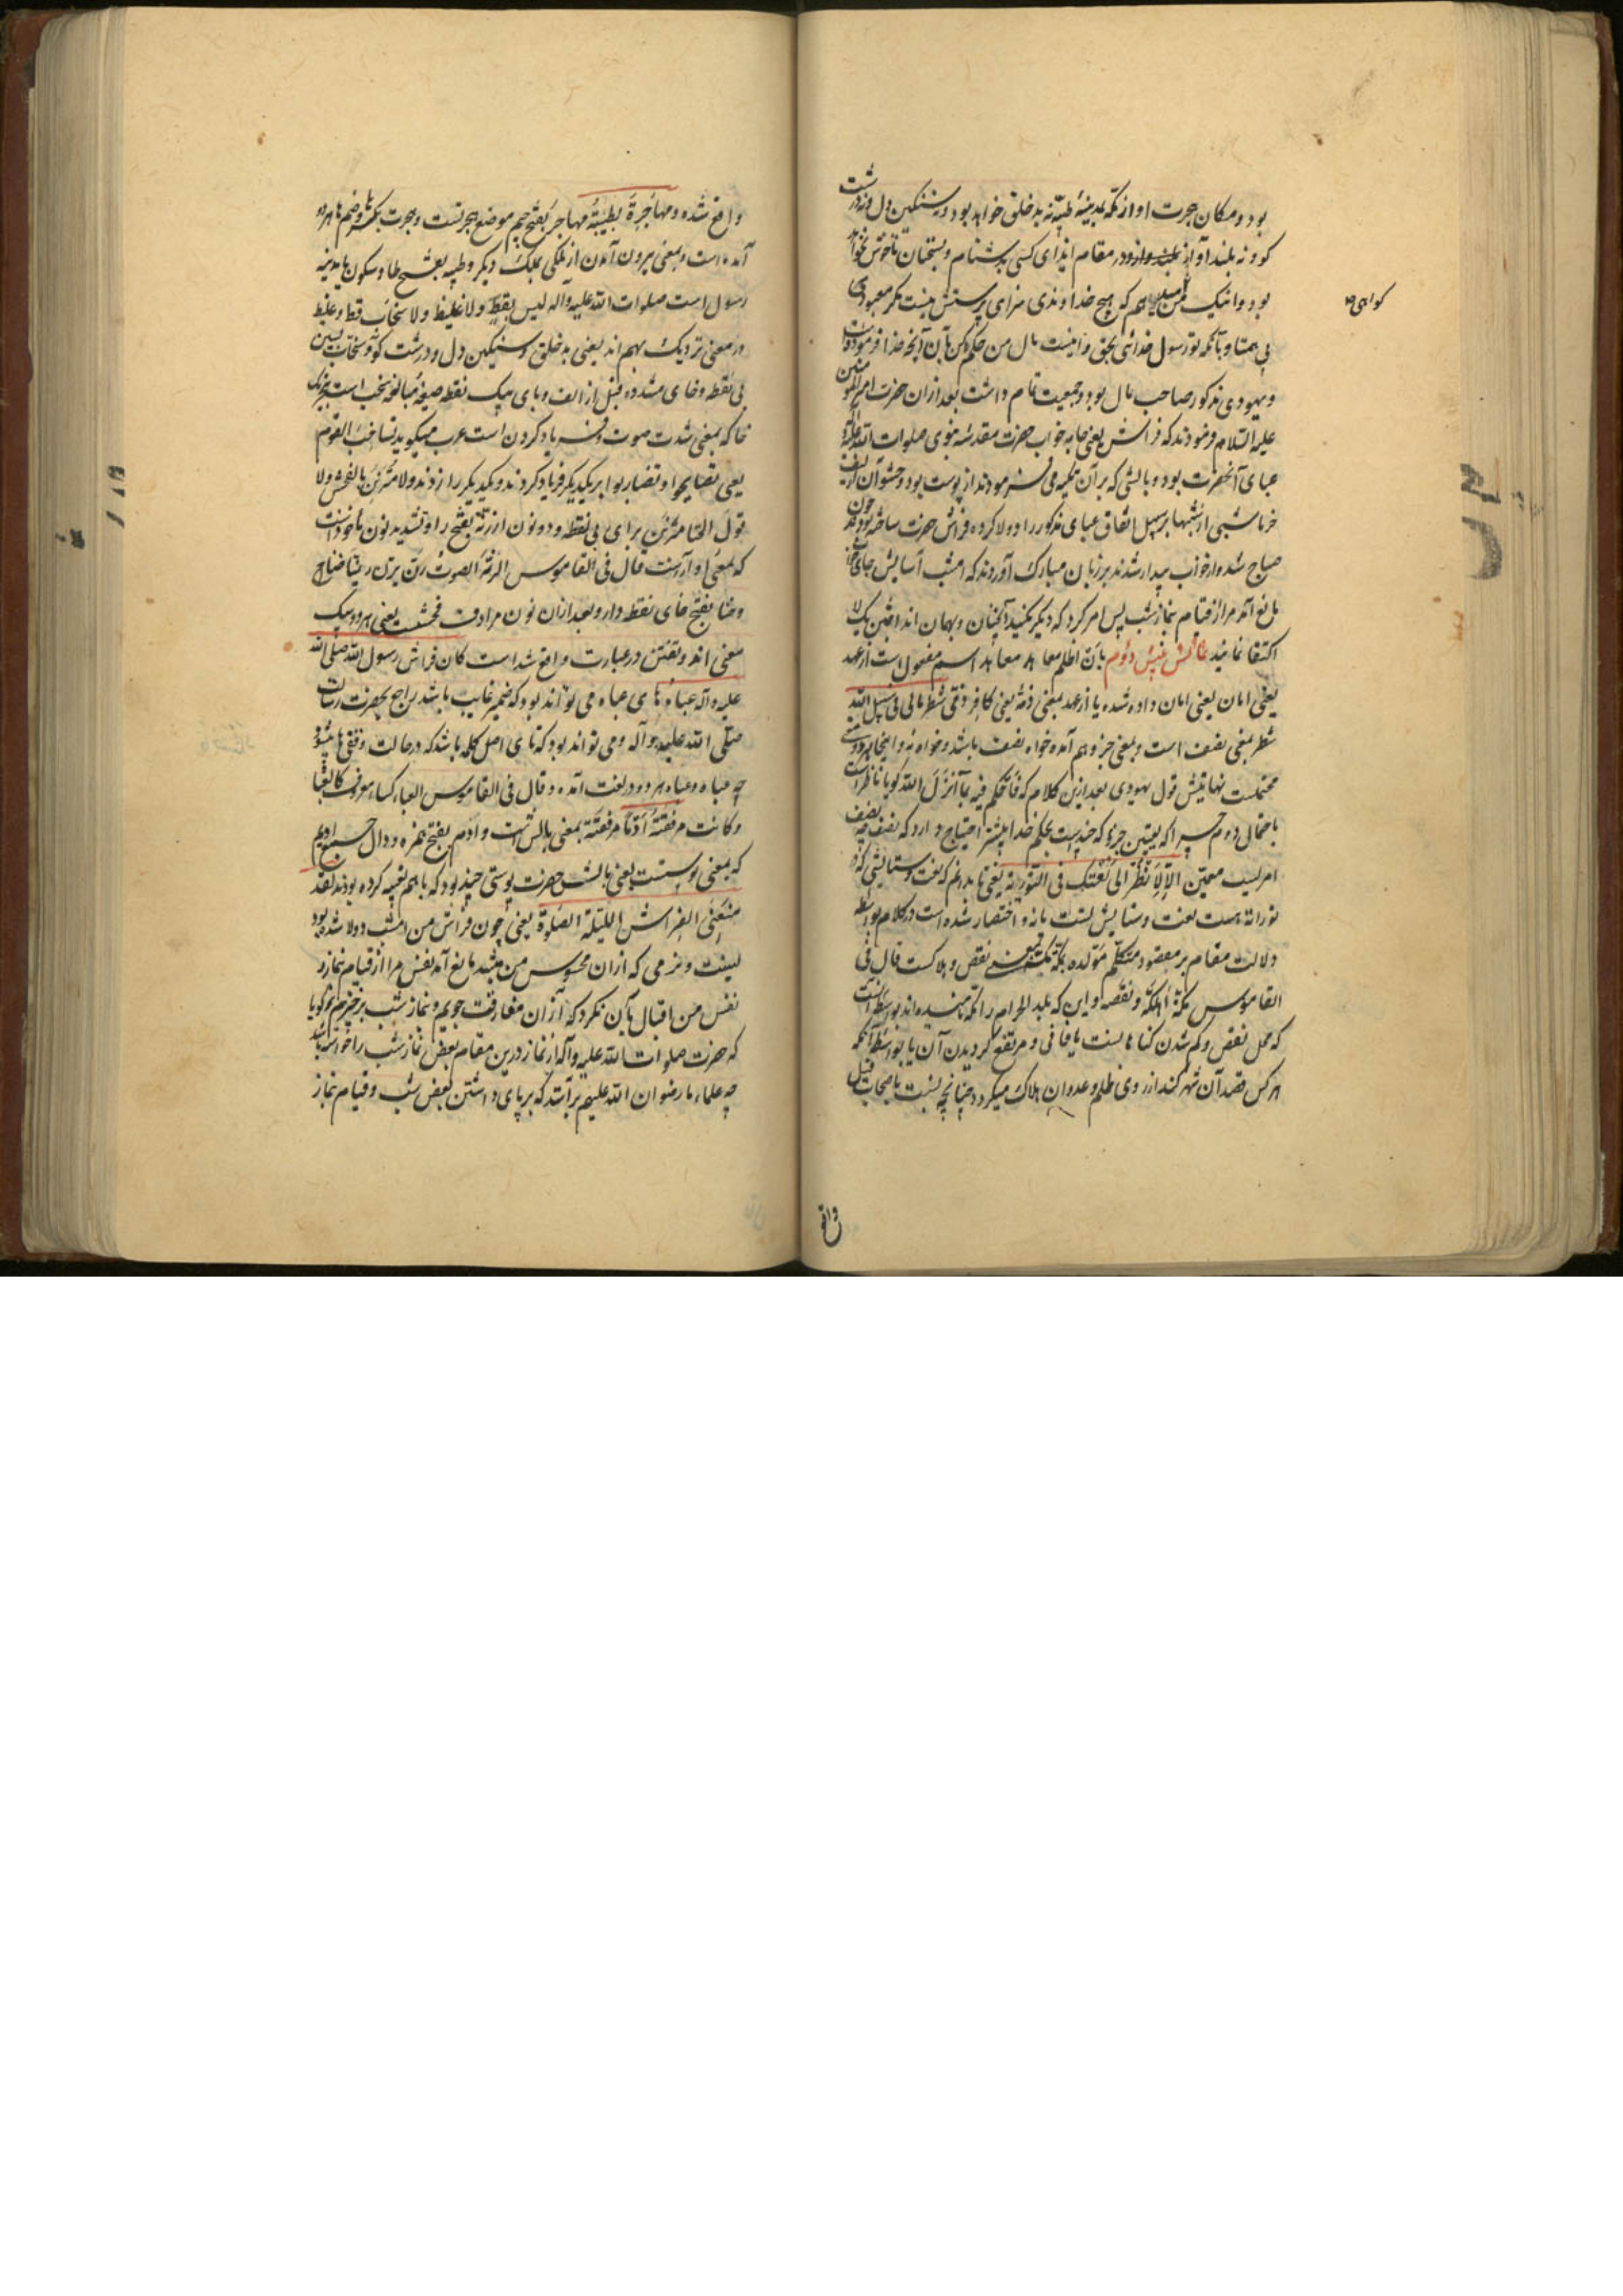 بود و مکان هجرت او از مکه بمدینهٔ طیبه نه بدخلق خواهد بود و نه سنگین دل و نه درشت
کو و نه بلند آواز و در مقام ایذای کسی بدشنام و بسخنان ناخوش نخواهد
بود و اینک من میدهم که هیچ خداوندی سزای پرستش نیست مگر معبودی
کواهی
بی همتا و بآنکه تو رسول خدائی بحق و اینست مال من حکم کن بآن آنچه خدا فرموده است
و یهودی مذکور صاحب مال بود و جمعیت تام داشت بعد از ان حضرت امیر المومنین
علیه السلام فرمودند که فراش یعنی جامه خواب حضرت مقدسهٔ نبوی صلوات الله علیه و آله
عبای آنحضرت بود و بالشی که بر آن تکیه می فرمودند از پوست بود و حشو آن از لیف
خرما شبی از شبها بر سبیل اتفاق عبای مذکور را دولا کرده فراش حضرت ساخته بودند چون
صباح شد و از خواب بیدار شدند بر زبان مبارک آوردند که امشب آسایش جای
مانع آمد مرا از قیام بنماز شب پس امر کرد که دیگر نکنید آنچنان و بهمان انداختن یک لا
اکتفا نمائید بان اظلم معاهد معاهد اسم مفعول است از عهد
یعنی امان یعنی امان داده شده یا از عهد بمعنی ذمه یعنی کافر ذمی شطر مالی فی سبیل الله
شطر بمعنی نصف است و بمعنی جزو هم آمده خواه نصف باشد و خواه نه و اینجا هر دو معنی
محتملست نهایتش قول یهودی بعد ازین کلام که فاحکم فیه بما انزل الله گویا ناظر است
باحتمال دوم چرا که تعیین جزو که چند است بحکم خدا بیشتر احتیاج دارد که نصف چه نصف
امریست معین الا لانظر الی نعتک فی التوریة یعنی تا بدانم که نعت و ستایشی که در
توراة هست نعت و ستایش تست یا نه و اختصار شده است در کلام بواسطه
دلالت مقام بر مقصود متکلم مولده بمکة مک بمعنی نقص و هلاکست قال فی
القاموس مکة اهلکه و نقصه و این که بلد الحرام را مکه نامیده اند بواسطه آنست
که محل نقص و کم شدن گناهانست یا فانی و مرتفع گردیدن آن یا بواسطه آنکه
هر کس قصد آن شهر کند از روی ظلم و عدوان هلاک میگردد چنانچه نسبت باصحاب فیل
واقع
واقع شده و مهاجرة بطیبة مهاجر بفتح جیم موضع هجرتست و هجرت بکسر ها و ضم ها هر دو
آمده است و بمعنی بیرون آمدن از ملکی بملک دیگر و طیبه بفتح طا و سکون یا مدینه
رسول است صلوات الله علیه و اله لیس بفظ ولا غلیظ ولا سخاب فظ و غلیظ
در معنی نزدیک بهم اند یعنی بدخلق و سنگین دل و درشت گو و سخاب بسین
بی نقطه و خای مشدده قبل از الف و بای بیک نقطه صیغهٔ مبالغه سخب است بتحریک
خا که بمعنی شدت صوت و فریاد کردن است عرب میگوید تساخب القوم
یعنی تصایحوا و تضاربوا بر یکدیگر فریاد کردند و یکدیگر را زدند ولا مترنن بالفحش ولا
قول الخنا مترنن برای بی نقطه و دو نون از رنة بفتح را و تشدید نون ماخوذست
که بمعنی آوازست قال فی القاموس الرنة الصوت رن یرن رنینا صاح
و خنا بفتح خای نقطه دار و بعد از ان نون مرادف فحشست یعنی هر دو بیک
معنی اند و تفنن در عبارت واقع شده است کان فراش رسول الله صلی الله
علیه و آله عباءه های عباءه می تواند بود که ضمیر غایب باشد راجع بحضرت رسالت
صلی الله علیه و آله و می تواند بود که تای اصل کلمه باشد که در حالت وقف ها میشود
چه عباء و عباءه هر دو در لغت آمده و قال فی القاموس العباء کساء معروف کالعباءة
و کانت مرفقته ادم مرفقة بمعنی بالش است و ادم بفتح همزه و دال جمع ادیم
که بمعنی پوستست یعنی بالش حضرت پوستی چند بود که باهم تعبیه کرده بودند لقد
منعنی الفراش اللیلة الصلوة یعنی چون فراش من امشب دولا شده بود
لینت و نرمی که از ان محسوس من میشد مانع آمد نفس مرا از قیام بنماز و
نفس من اقبال بآن نکرد که از ان مفارقت جویم و بنماز شب برخیزم گویا
که حضرت صلوات الله علیه و آله از نماز درین مقام بعض نماز شب را خواسته باشد
چه علماء ما رضوان الله علیهم برآنند که بر پای داشتن بعض شب و قیام بنماز